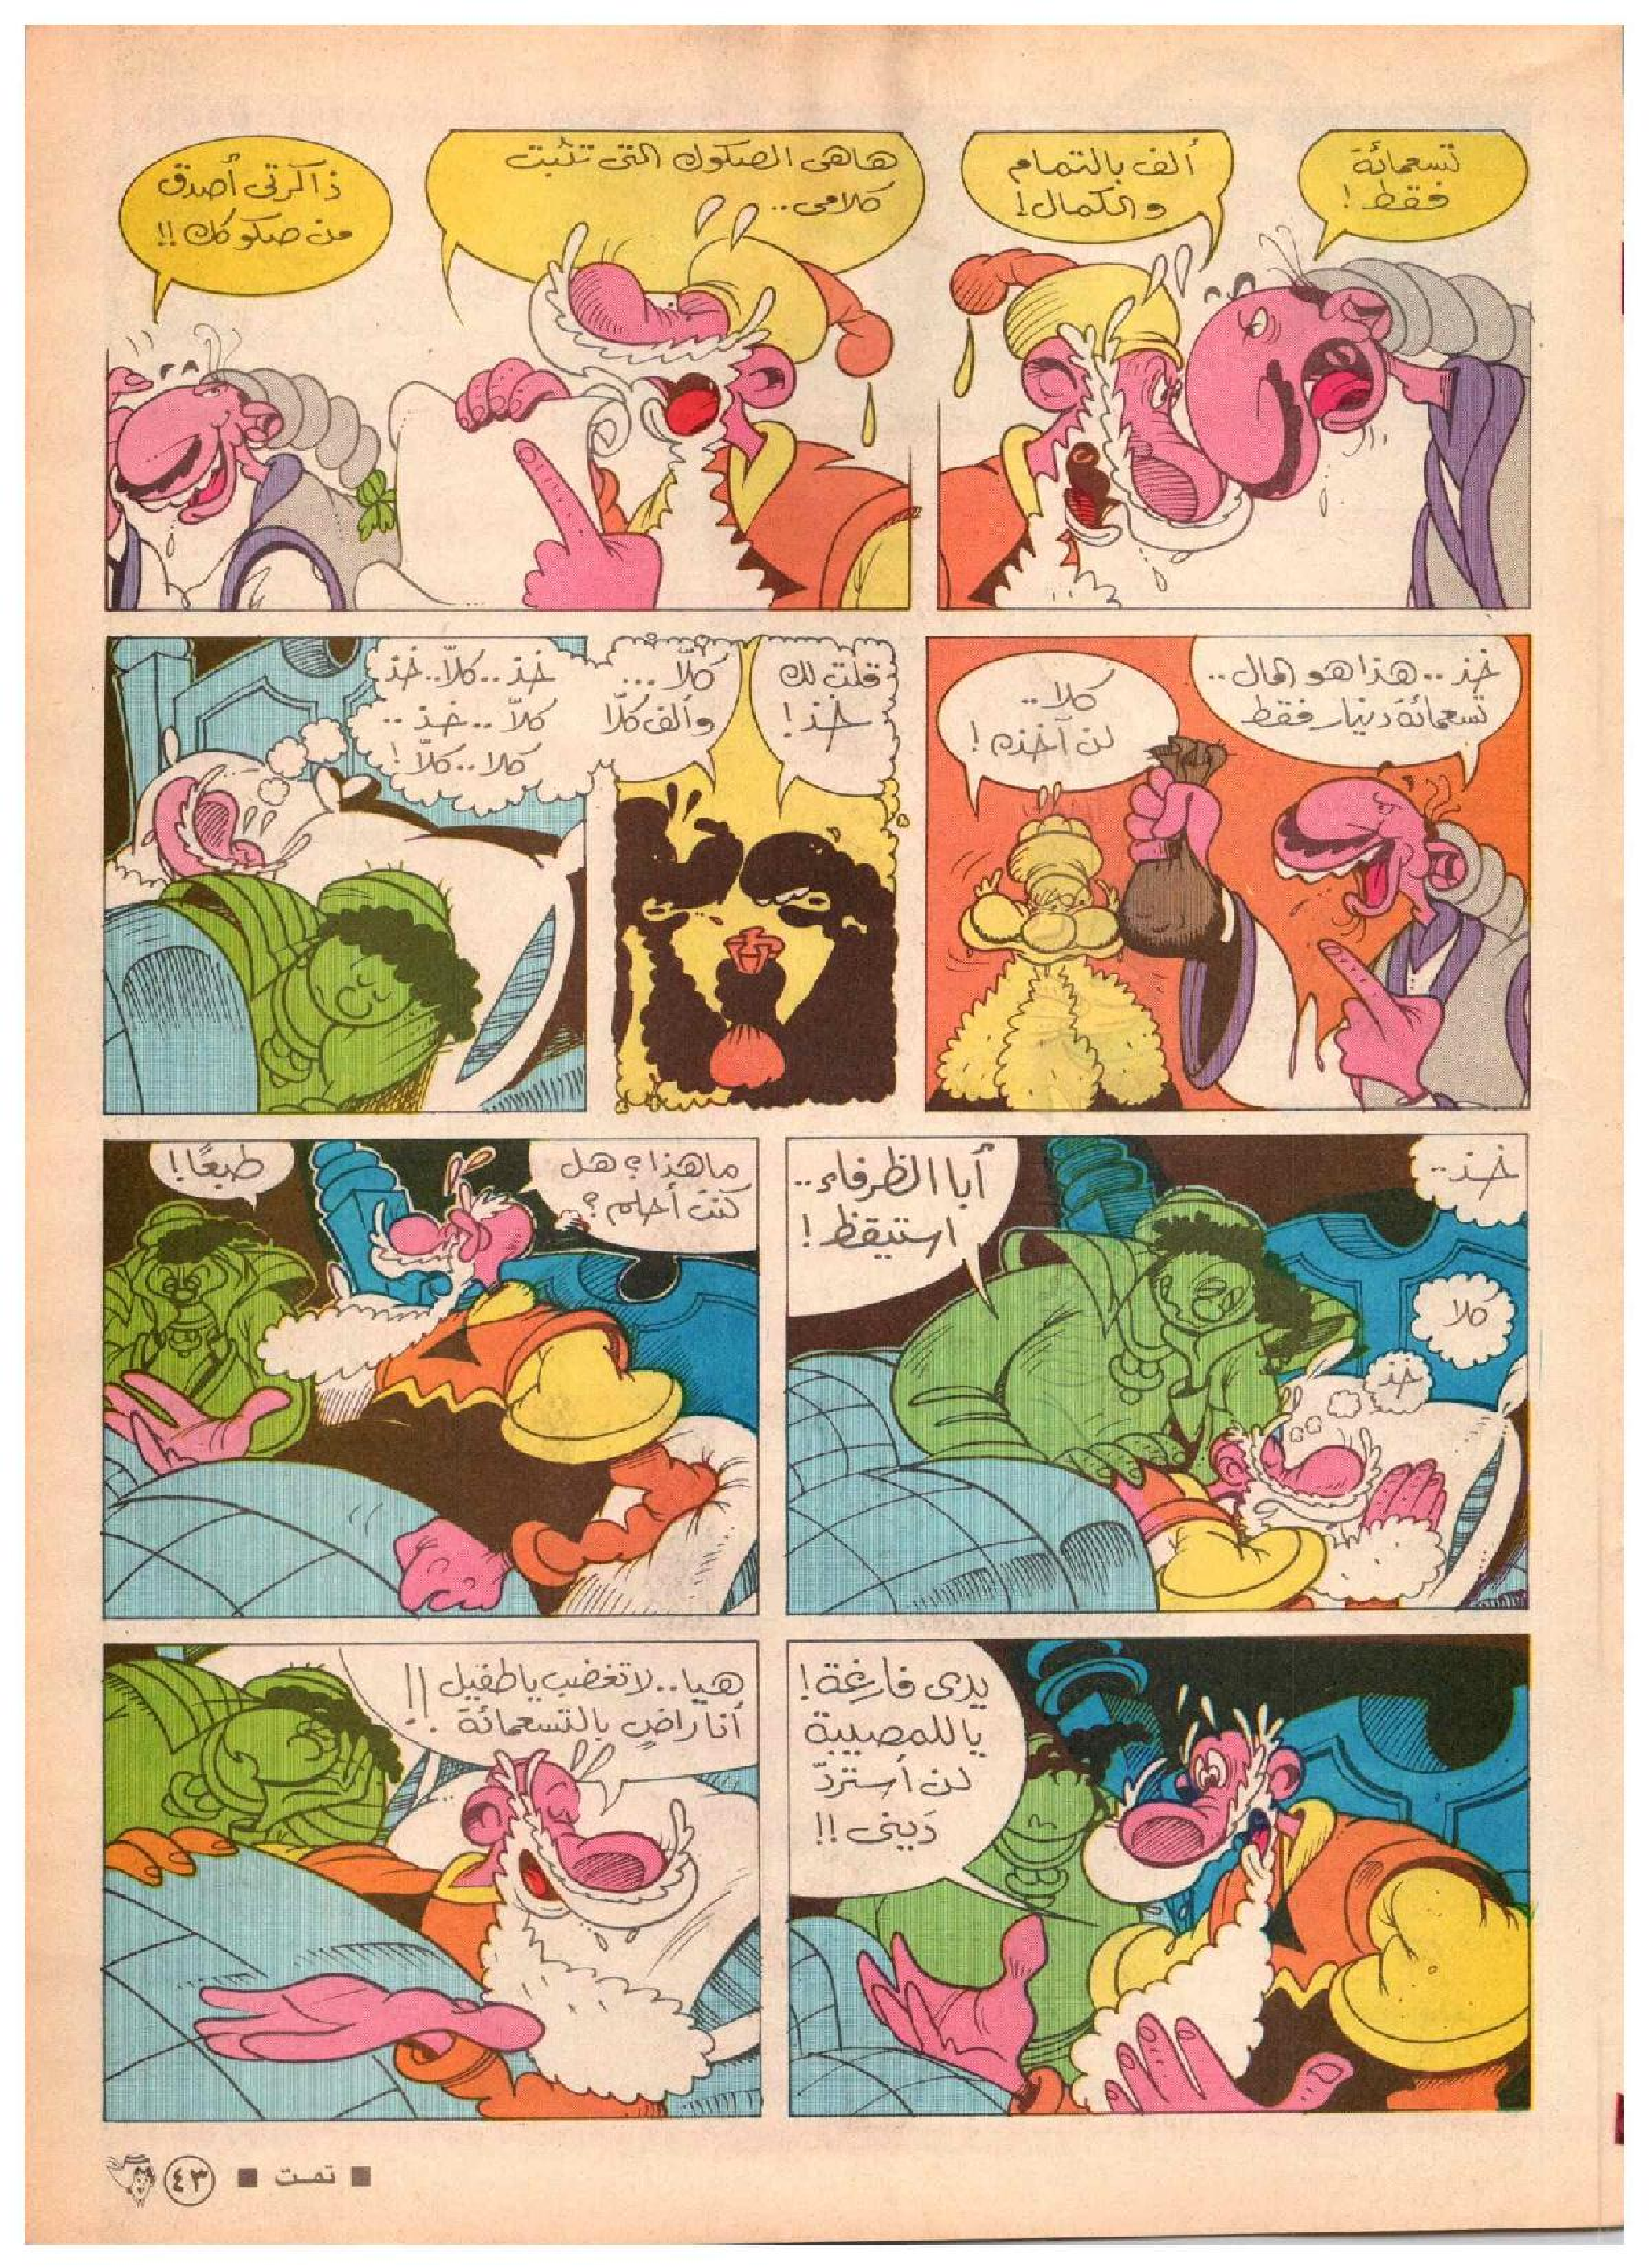 تسعمائة
فقط!
ألف بالتمام
والكمال!
هاهى الصكوك التى تثبت
كلامى..
ذاكرتى أصدق
من صكوكك!!
خذ.. هذا هو المال..
تسعمائة دينار فقط
كلا..
لن آخذه!
قلت لك
خذ!
كلاّ...
وألف كلاّ
خذ.. كلاّ.. خذ
كلاّ.. خذ..
كلا.. كلاّ!
خذ..
كلا
خذ
أبا الظرفاء..
استيقظ!
ماهذا؟ هل
كنت أحلم؟
طبعًا!
يدى فارغة!
ياللمصيبة
لن أستردّ
دَينى!!
هيا.. لا تغضب ياطفيل
أنا راضٍ بالتسعمائة!!
تمت
٤٣